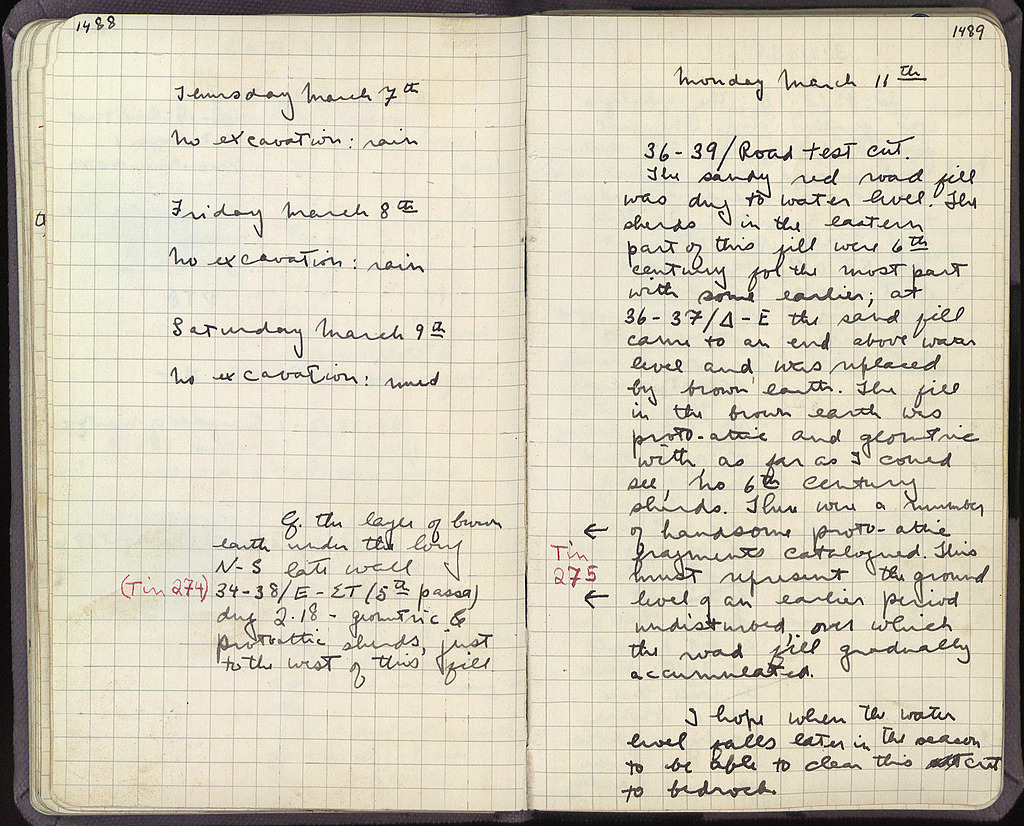 1488
Thursday March 7th
no excavation: rain
Friday March 8th
no excavation: rain
Saturday March 9th
no excavation: mud
Cf. the layer of brown
earth under the long
N-S late wall
(Tin 274) 34-38/E-ΣΤ (5th passa)
dug 2.18 - geometric &
protoattic sherds, just
to the west of this fill
1489
Monday March 11th
36-39/Road test cut.
The sandy red road fill
was dug to water level. The
sherds in the eastern
part of this fill were 6th
century for the most part
with some earlier; at
36-37/Δ-E the sand fill
came to an end above water
level and was replaced
by brown earth. The fill
in the brown earth was
proto-attic and geometric
with, as far as I could
see, no 6th century
sherds. There were a number
← of handsome proto-attic
Tin 275 fragments catalogued. This
must represent the ground
← level of an earlier period
undisturbed, over which
the road fill gradually
accumulated.
I hope when the water
level falls later in the season
to be able to clear this cut
to bedrock.